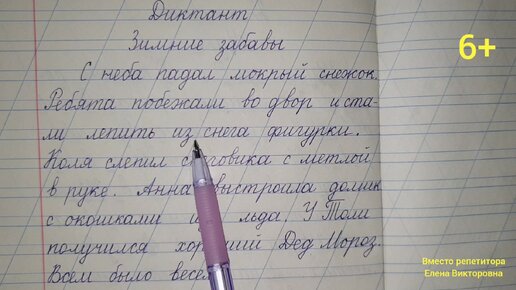 Диктант
Зимние забавы
6+
С неба падал мокрый снежок.
Ребята побежали во двор и ста-
ли лепить из снега фигурки.
Коля слепил с говика с метлой
в руке. Анна выстроила домик
с окошками из льда. У Толи
получился хороший Дед Мороз.
Всем было весел
Вместо репетитора
Елена Викторовна